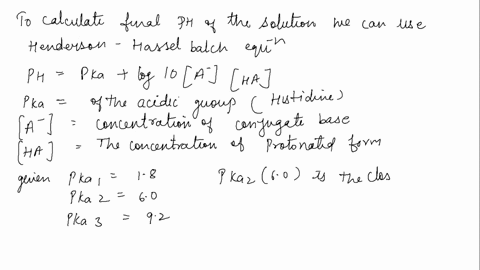 To calculate final PH of the solution we can use
Henderson - Hassel balch equⁿ
PH = Pka + log 10 [A⁻] [HA]
Pka = of the acidic group (Histidine)
[A⁻] = concentration of conjugate base
[HA] = The concentration of Protonated form
given Pka₁ = 1.8 Pka₂ (6.0) is the clos
Pka₂ = 6.0
Pka₃ = 9.2